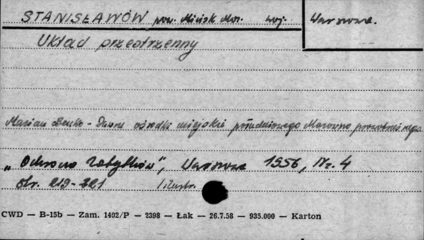 STANISŁAWÓW pow. Mińsk Maz. woj. Warszawa.
Układ przestrzenny
Marian Benko - Dawne ośrodki miejskie południowego Mazowsza
„Ochrona Zabytków", Warszawa 1956, Nr. 4
str. 219-221 / ilustr.
CWD — B-15b — Zam. 1402/P — 2398 — Łak — 26.7.58 — 935.000 — Karton